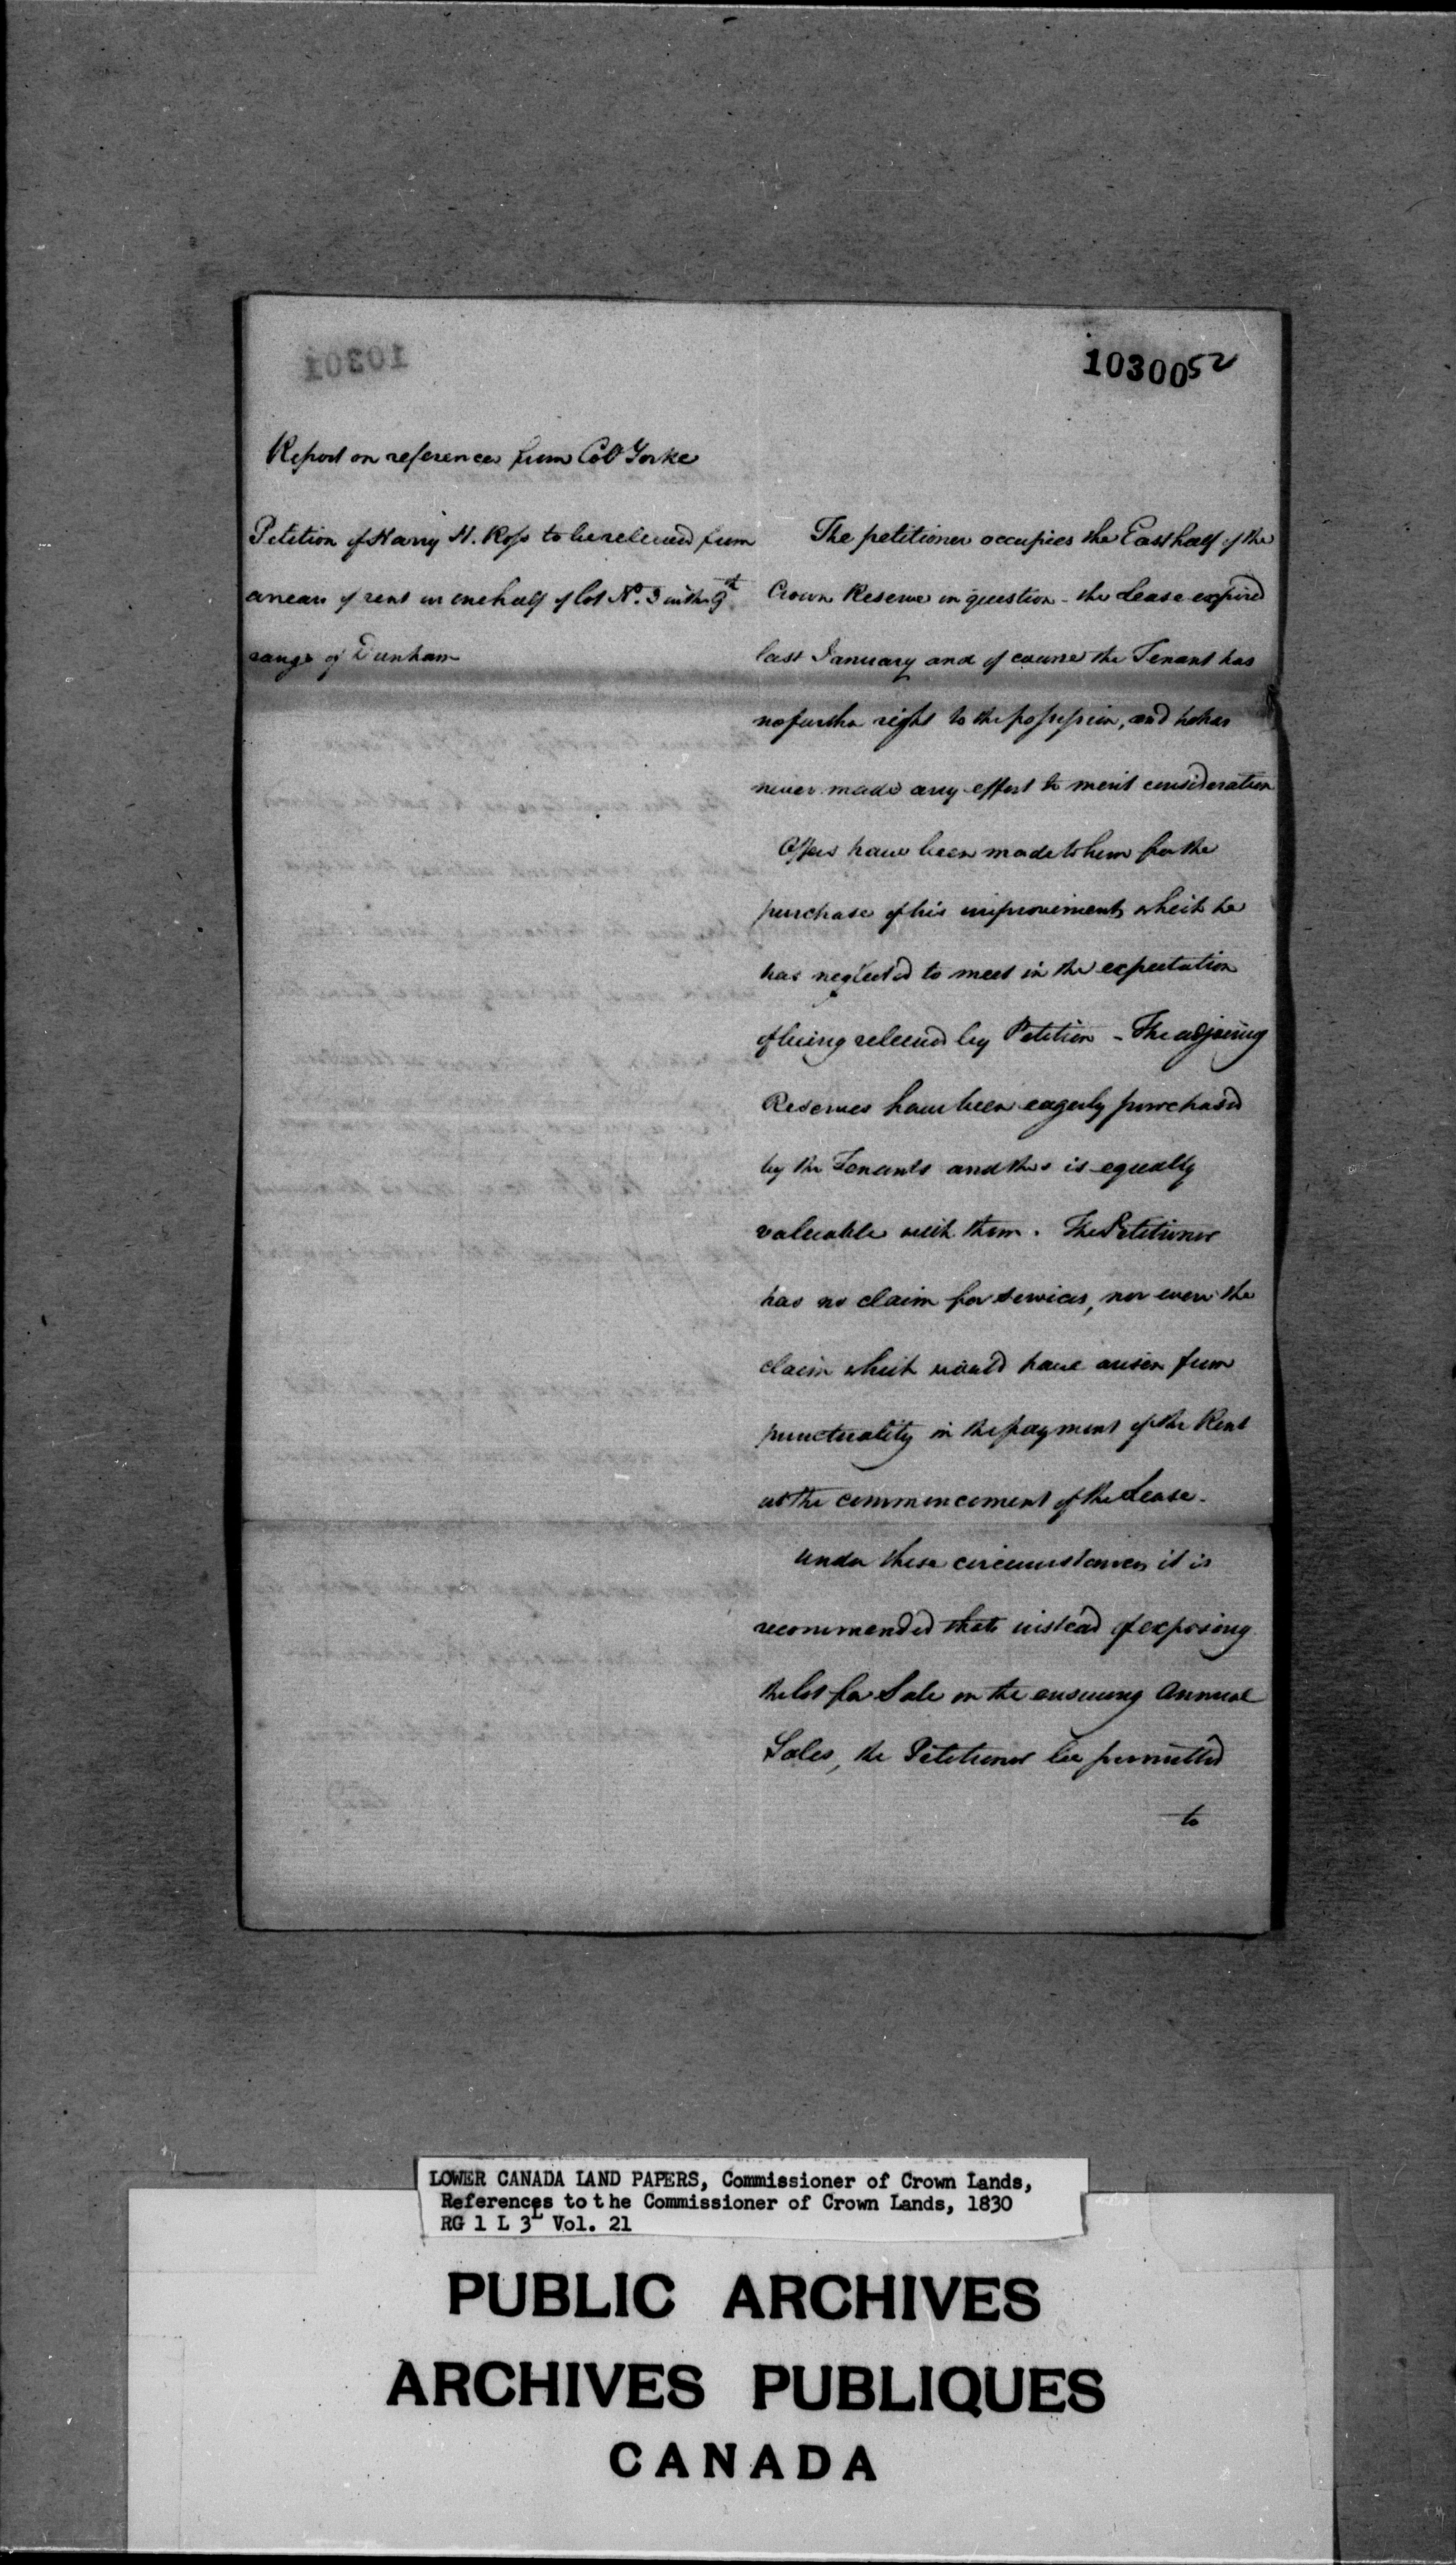 10300 52
Report on references from Col Yorke
Petition of Harry H. Ross to be relieved from
arrears of rent on one half of lot No. 3 in the 9th
range of Dunham
The petitioner occupies the East half of the
Crown Reserve in question - the Lease expired
last January and of course the Tenant has
no further right to the possession, and he has
never made any effort to merit consideration
Offers have been made to him for the
purchase of his improvements which he
has neglected to meet in the expectation
of being relieved by Petition - The adjoining
Reserves have been eagerly purchased
by the Tenants and this is equally
valuable with them. The Petitioner
has no claim for services, nor even the
claim which would have arisen from
punctuality in the payment of the Rent
at the commencement of the Lease.
Under these circumstances it is
recommended that instead of exposing
the lot for Sale on the ensuing Annual
Sales, the Petitioner be permitted
to
LOWER CANADA LAND PAPERS, Commissioner of Crown Lands,
References to the Commissioner of Crown Lands, 1830
RG 1 L 3L Vol. 21
PUBLIC ARCHIVES
ARCHIVES PUBLIQUES
CANADA